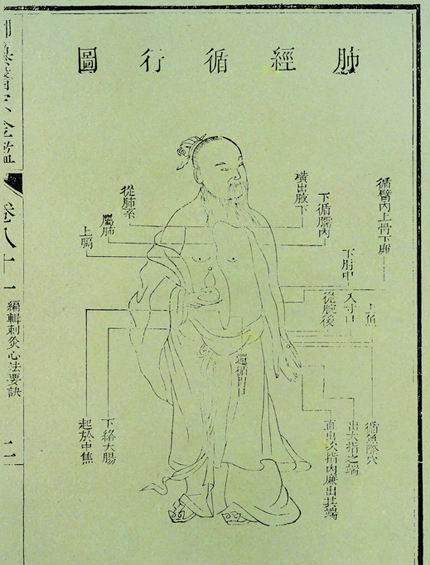 肺經循行圖
循臂內上骨下廉
下肘中
入寸口
上魚
橫出腋下
下循臑內
從肺系
屬肺
上膈
還循胃口
從腕後
循魚際穴
出大指之端
直出次指內廉出其端
下絡大腸
起於中焦
卷八十一
編輯刺灸心法要訣